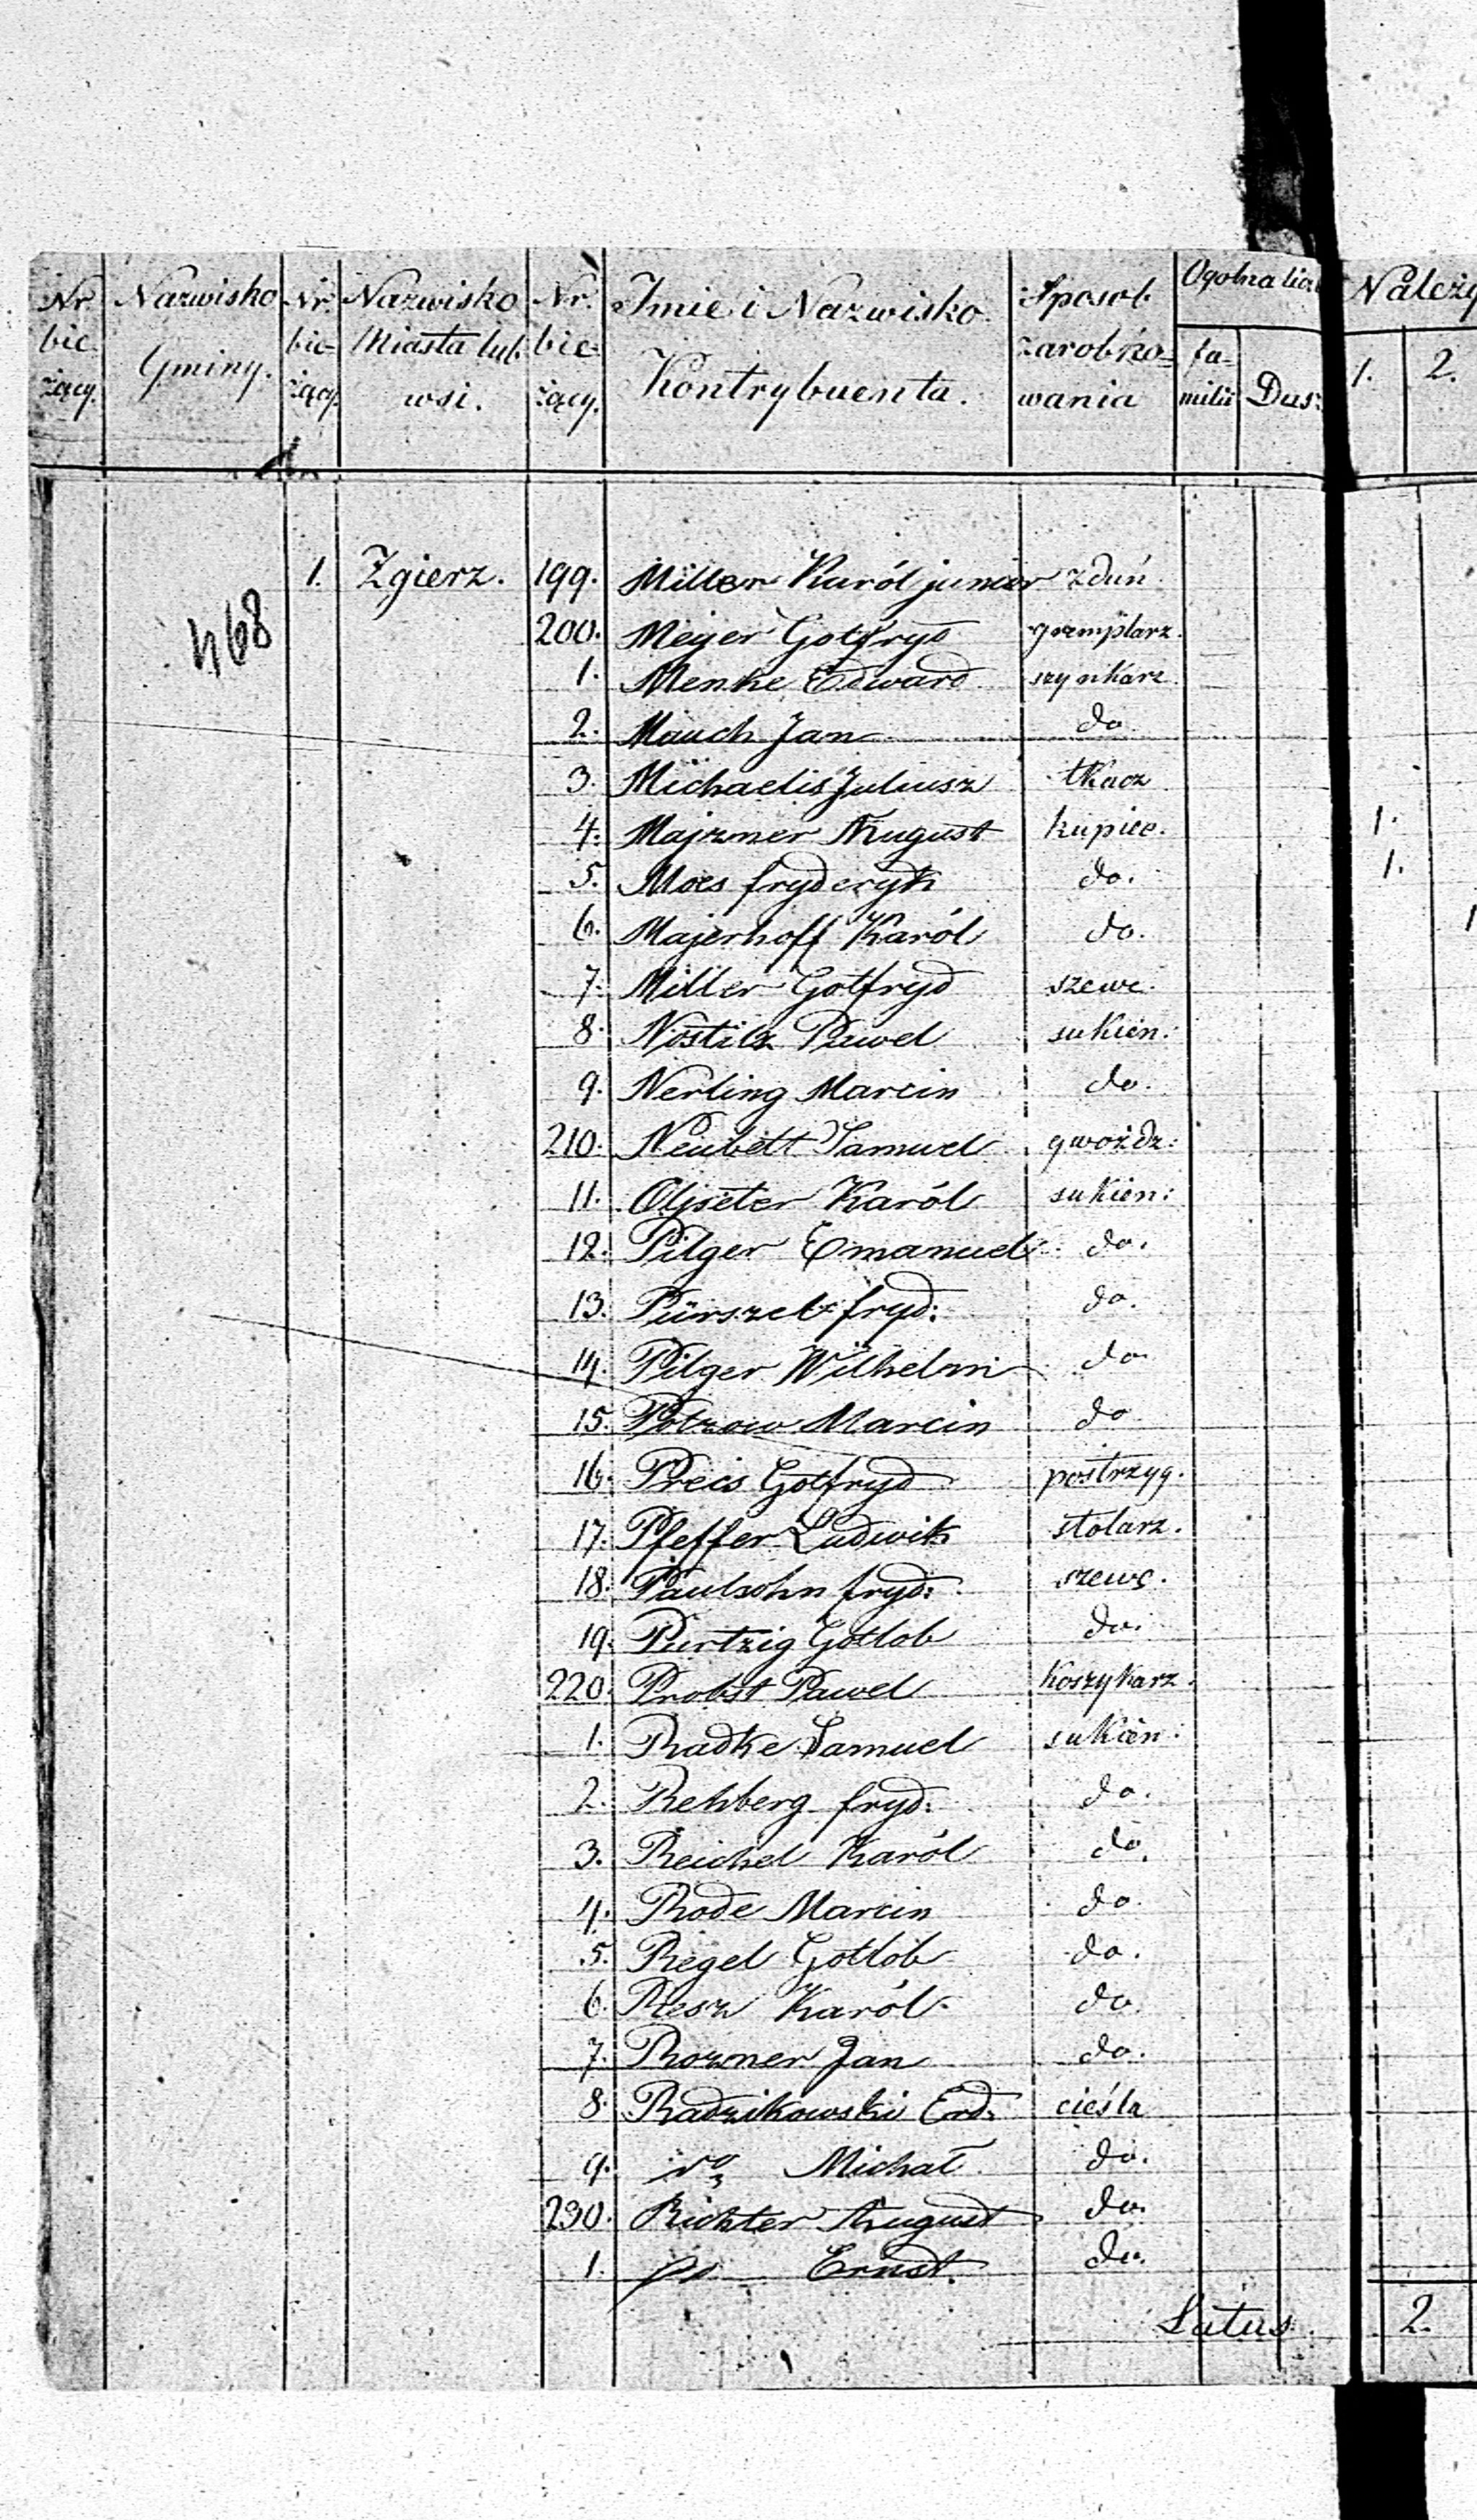 Nr. bieżący. Nazwisko Gminy. Nr. bieżący. Nazwisko Miasta lub wsi. Nr. bieżący. Imie i Nazwisko Kontrybuenta. Sposob zarobko=wania Ogolna licz familii Dusz Należy 1. 2.
468
1. Zgierz. 199. Miller Karól junior zduń.
200. Meyer Gotfryd gremplarz.
1. Menke Edward szynkarz.
2. Mauch Jan do
3. Michaelis Juliusz tkacz
4. Majzner August kupiec. 1.
5. Moes fryderyk do. 1.
6. Majerhoff Karól do. 1
7. Miller Gotfryd szewc.
8. Nostitz Pawel sukien:
9. Nerling Marcin do.
210. Neubett Samuel gwoźdz:
11. Oljseter Karól sukien:
12. Pilger Emanuel do.
13. Pürszel fryd: do.
14. Pilger Wilhelm do
15. Potzow Marcin do
16. Preis Gotfryd postrzyg.
17. Pfeffer Ludwik stolarz.
18. Paulsohn fryd: szewc.
19. Purtzig Gotlob do.
220. Probst Pawel koszykarz.
1. Radke Samuel sukien:
2. Rehberg fryd: do.
3. Reichel Karól do.
4. Rode Marcin do.
5. Regel Gotlob do.
6. Resz Karól do.
7. Rozner Jan do.
8. Radzikowski Erd: cieśla
9. Michał do.
230. Richter August do.
1. Ernst. do.
Latus. 2.